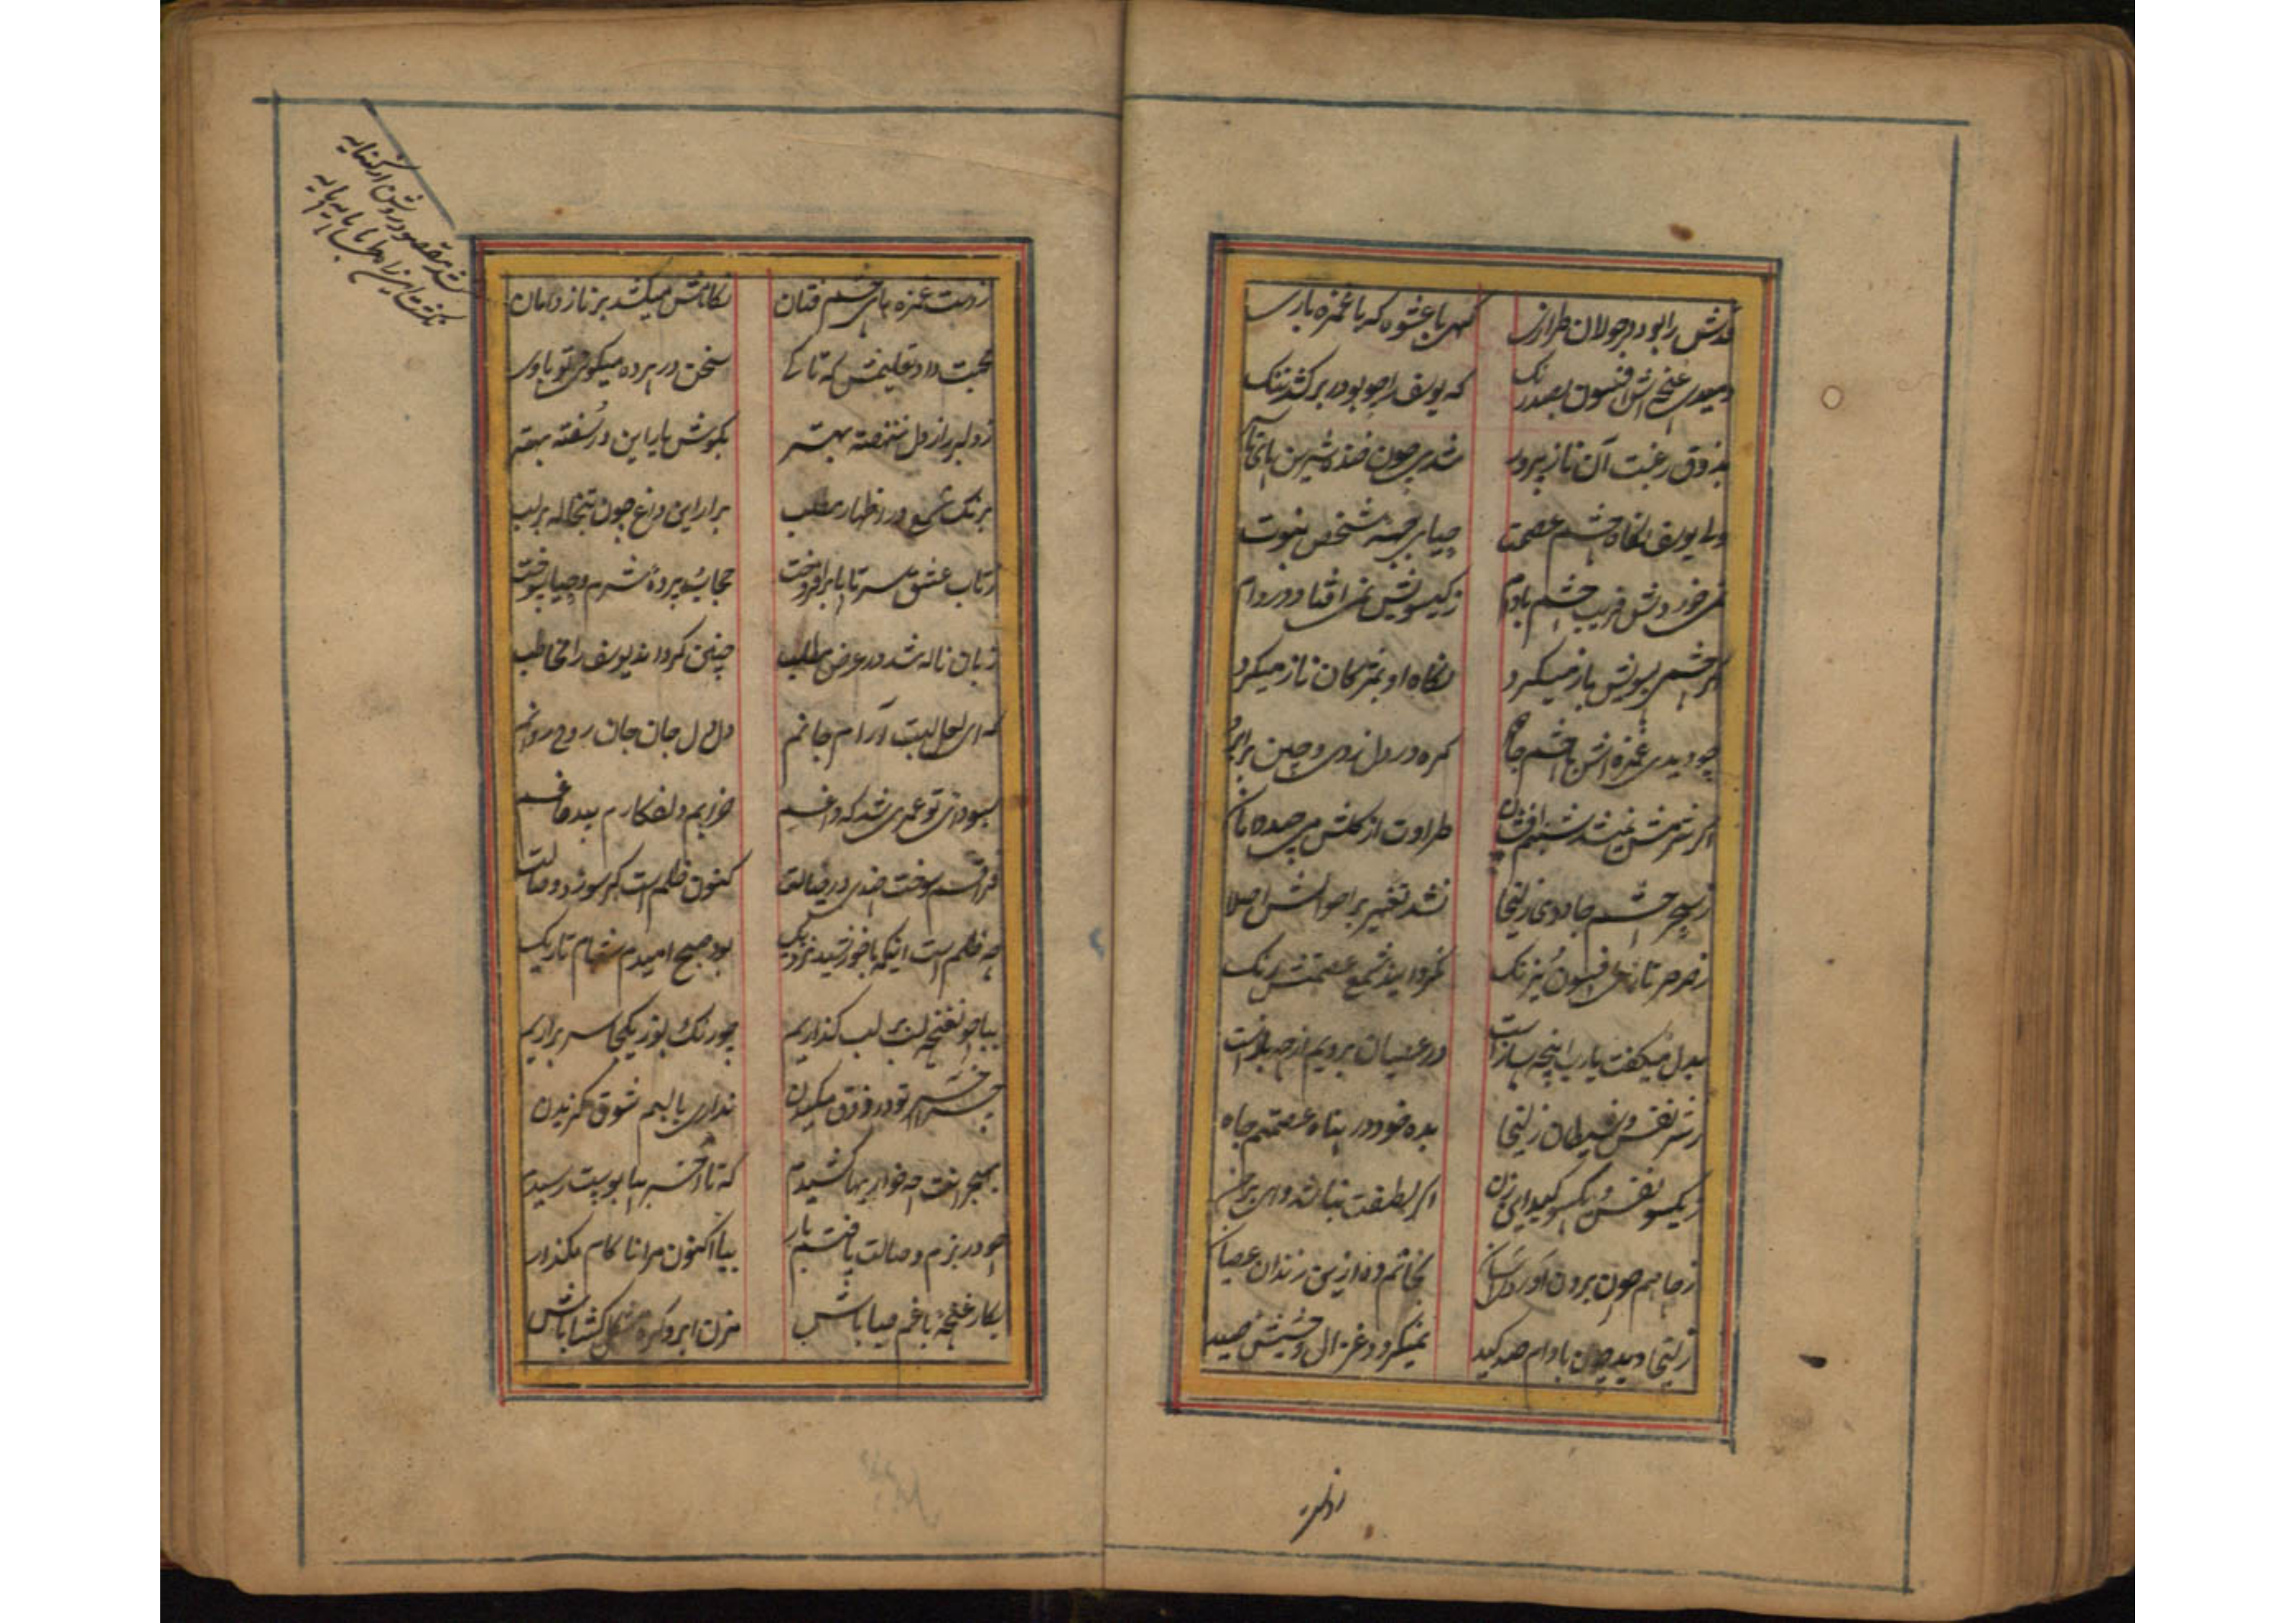 قدش را بود در جولان طرازی گهی با عشوه که با غمزه بازی
دمیدی غنچه اش افسون بصد رنگ که یوسف را چو بو در بر کشد تنگ
بذوق رغبت آن ناز پرور شدی چون خنده شیرین
ولی یوسف نگاه چشم عصمت حیای جبهه شخص نبوت
نمی خوردش فریب چشم بادام ز گیسویش نمی افتاد در دام
گر چشمی بسویش باز میکرد نگاه او بمژگان ناز میکرد
چو دیدی غمزه اش با چشم جادو گره در دل زدی و چین بر ابرو
اگر شرمش نمیشد شبنم افشان طراوت از گلش می چید دامان
ز سحر چشم جادوی زلیخا نشد تغییر بر احوالش اصلا
ز صرصر تازی افسون نیرنگ نگردانید شمع عصمتش رنگ
بدل میگفت یارب اینچه سازاست در عصیان برویم از چه بازاست
ز شر نفس و شیطان زلیخا بده خود در پناه عصمتم جا
ز یکسو نفس و یکسو کید این زن اگر لطفت نباشد وای بر من
ز چاهم چون برون آوردی آسان نجاتم ده ازین زندان عصیان
زلیخا دید چون با دام صد کید نمیگردد غزال وحشیش صید
ز دست غمزه های چشم فتان نگاهش میکشد بر ناز دامان
محبت داد تعلیمش که تا کی سخن در پرده میگوئی تو با وی
ز دلبر راز دل ننهفته بهتر بگوش یار این در سفته بهتر
برنگ شمع در اظهار مطلب برار این داغ چون تبخاله بر لب
ز تاب عشق سر تا پا برافروخت حجاب و پرده شرم و حیا سوخت
زبان ناله شد در عرض مطلب چنین گرداند یوسف را مخاطب
که ای لعل لبت آرام جانم دل دل جان جان روح روانم
بسودای تو عمری شد که داغم خرابم دلفگارم بیدماغم
فراقم سوخت چندی در خیالت کنون ظلم است گر سوزد وصالت
چه ظلم است اینکه با خورشید نزدیک بود صبح امیدم شام تاریک
بیا چو غنچه لب بر لب گذاریم چو رنگ و بو ز یکجا سر براریم
چرا تو در ذوق مکیدن نداری با لبم شوق گزیدن
بهجرانت چه خواریها کشیدم که تا آخر بپا بوست رسیدم
چو در بزم وصالت یافتم بار بیا اکنون مرا ناکام مگذار
بکار غنچه باغم صبا باش مزن ابرو گره مشکل گشا باش